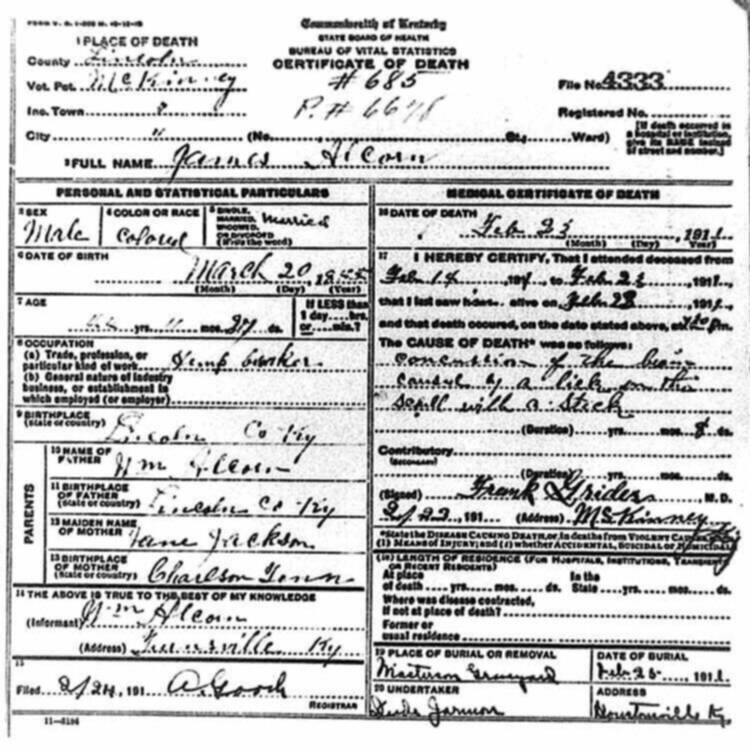 Commonwealth of Kentucky
STATE BOARD OF HEALTH
BUREAU OF VITAL STATISTICS
CERTIFICATE OF DEATH
1 PLACE OF DEATH
County Lincoln
Vot. Pct. McKinney
# 685
File No. 4333
Inc. Town
P. # 6648
Registered No.
City " (No. St.; Ward)
[If death occurred in a hospital or institution, give its NAME instead of street and number.]
2 FULL NAME James Alcorn
PERSONAL AND STATISTICAL PARTICULARS
3 SEX
Male
4 COLOR OR RACE
Colored
5 SINGLE, MARRIED, WIDOWED, OR DIVORCED
(Write the word)
Married
6 DATE OF BIRTH
March 20
(Month) (Day) (Year)
7 AGE
yrs. 11 mos. ds.
If LESS than
1 day....hrs.
or....min.?
8 OCCUPATION
(a) Trade, profession, or
particular kind of work
(b) General nature of industry
business, or establishment in
which employed (or employer)
9 BIRTHPLACE
(State or country)
Lincoln Co Ky
PARENTS
10 NAME OF
FATHER
Wm Alcorn
11 BIRTHPLACE
OF FATHER
(State or country)
Lincoln Co Ky
12 MAIDEN NAME
OF MOTHER
Jane Jackson
13 BIRTHPLACE
OF MOTHER
(State or country)
Tenn
14 THE ABOVE IS TRUE TO THE BEST OF MY KNOWLEDGE
(Informant) Wm Alcorn
(Address) Ky
15
Filed 2/24, 191 A. Gooch
REGISTRAR
11-3184
MEDICAL CERTIFICATE OF DEATH
16 DATE OF DEATH
Feb 23, 1911
(Month) (Day) (Year)
17 I HEREBY CERTIFY, That I attended deceased from
Feb 14 191 to Feb 191
that I last saw alive on Feb 23 191
and that death occured, on the date stated above, at m.
The CAUSE OF DEATH* was as follows:
concussion of the brain
caused by a lick on the
with a stick
(Duration) yrs. mos. 8 ds.
Contributory
(SECONDARY)
(Duration) yrs. mos. ds.
(Signed) Frank Grider M. D.
191 (Address) McKinney
*State the DISEASE CAUSING DEATH, or, in deaths from VIOLENT CAUSES
(1) MEANS OF INJURY; and (2) whether ACCIDENTAL, SUICIDAL or HOMICIDAL
(18) LENGTH OF RESIDENCE (FOR HOSPITALS, INSTITUTIONS, TRANSIENTS
OR RECENT RESIDENTS)
At place
of death yrs. mos. ds.
In the
State yrs. mos. ds.
Where was disease contracted,
if not at place of death?
Former or
usual residence
19 PLACE OF BURIAL OR REMOVAL
Graveyard
DATE OF BURIAL
Feb 25, 1911
20 UNDERTAKER
ADDRESS
Hustonville Ky